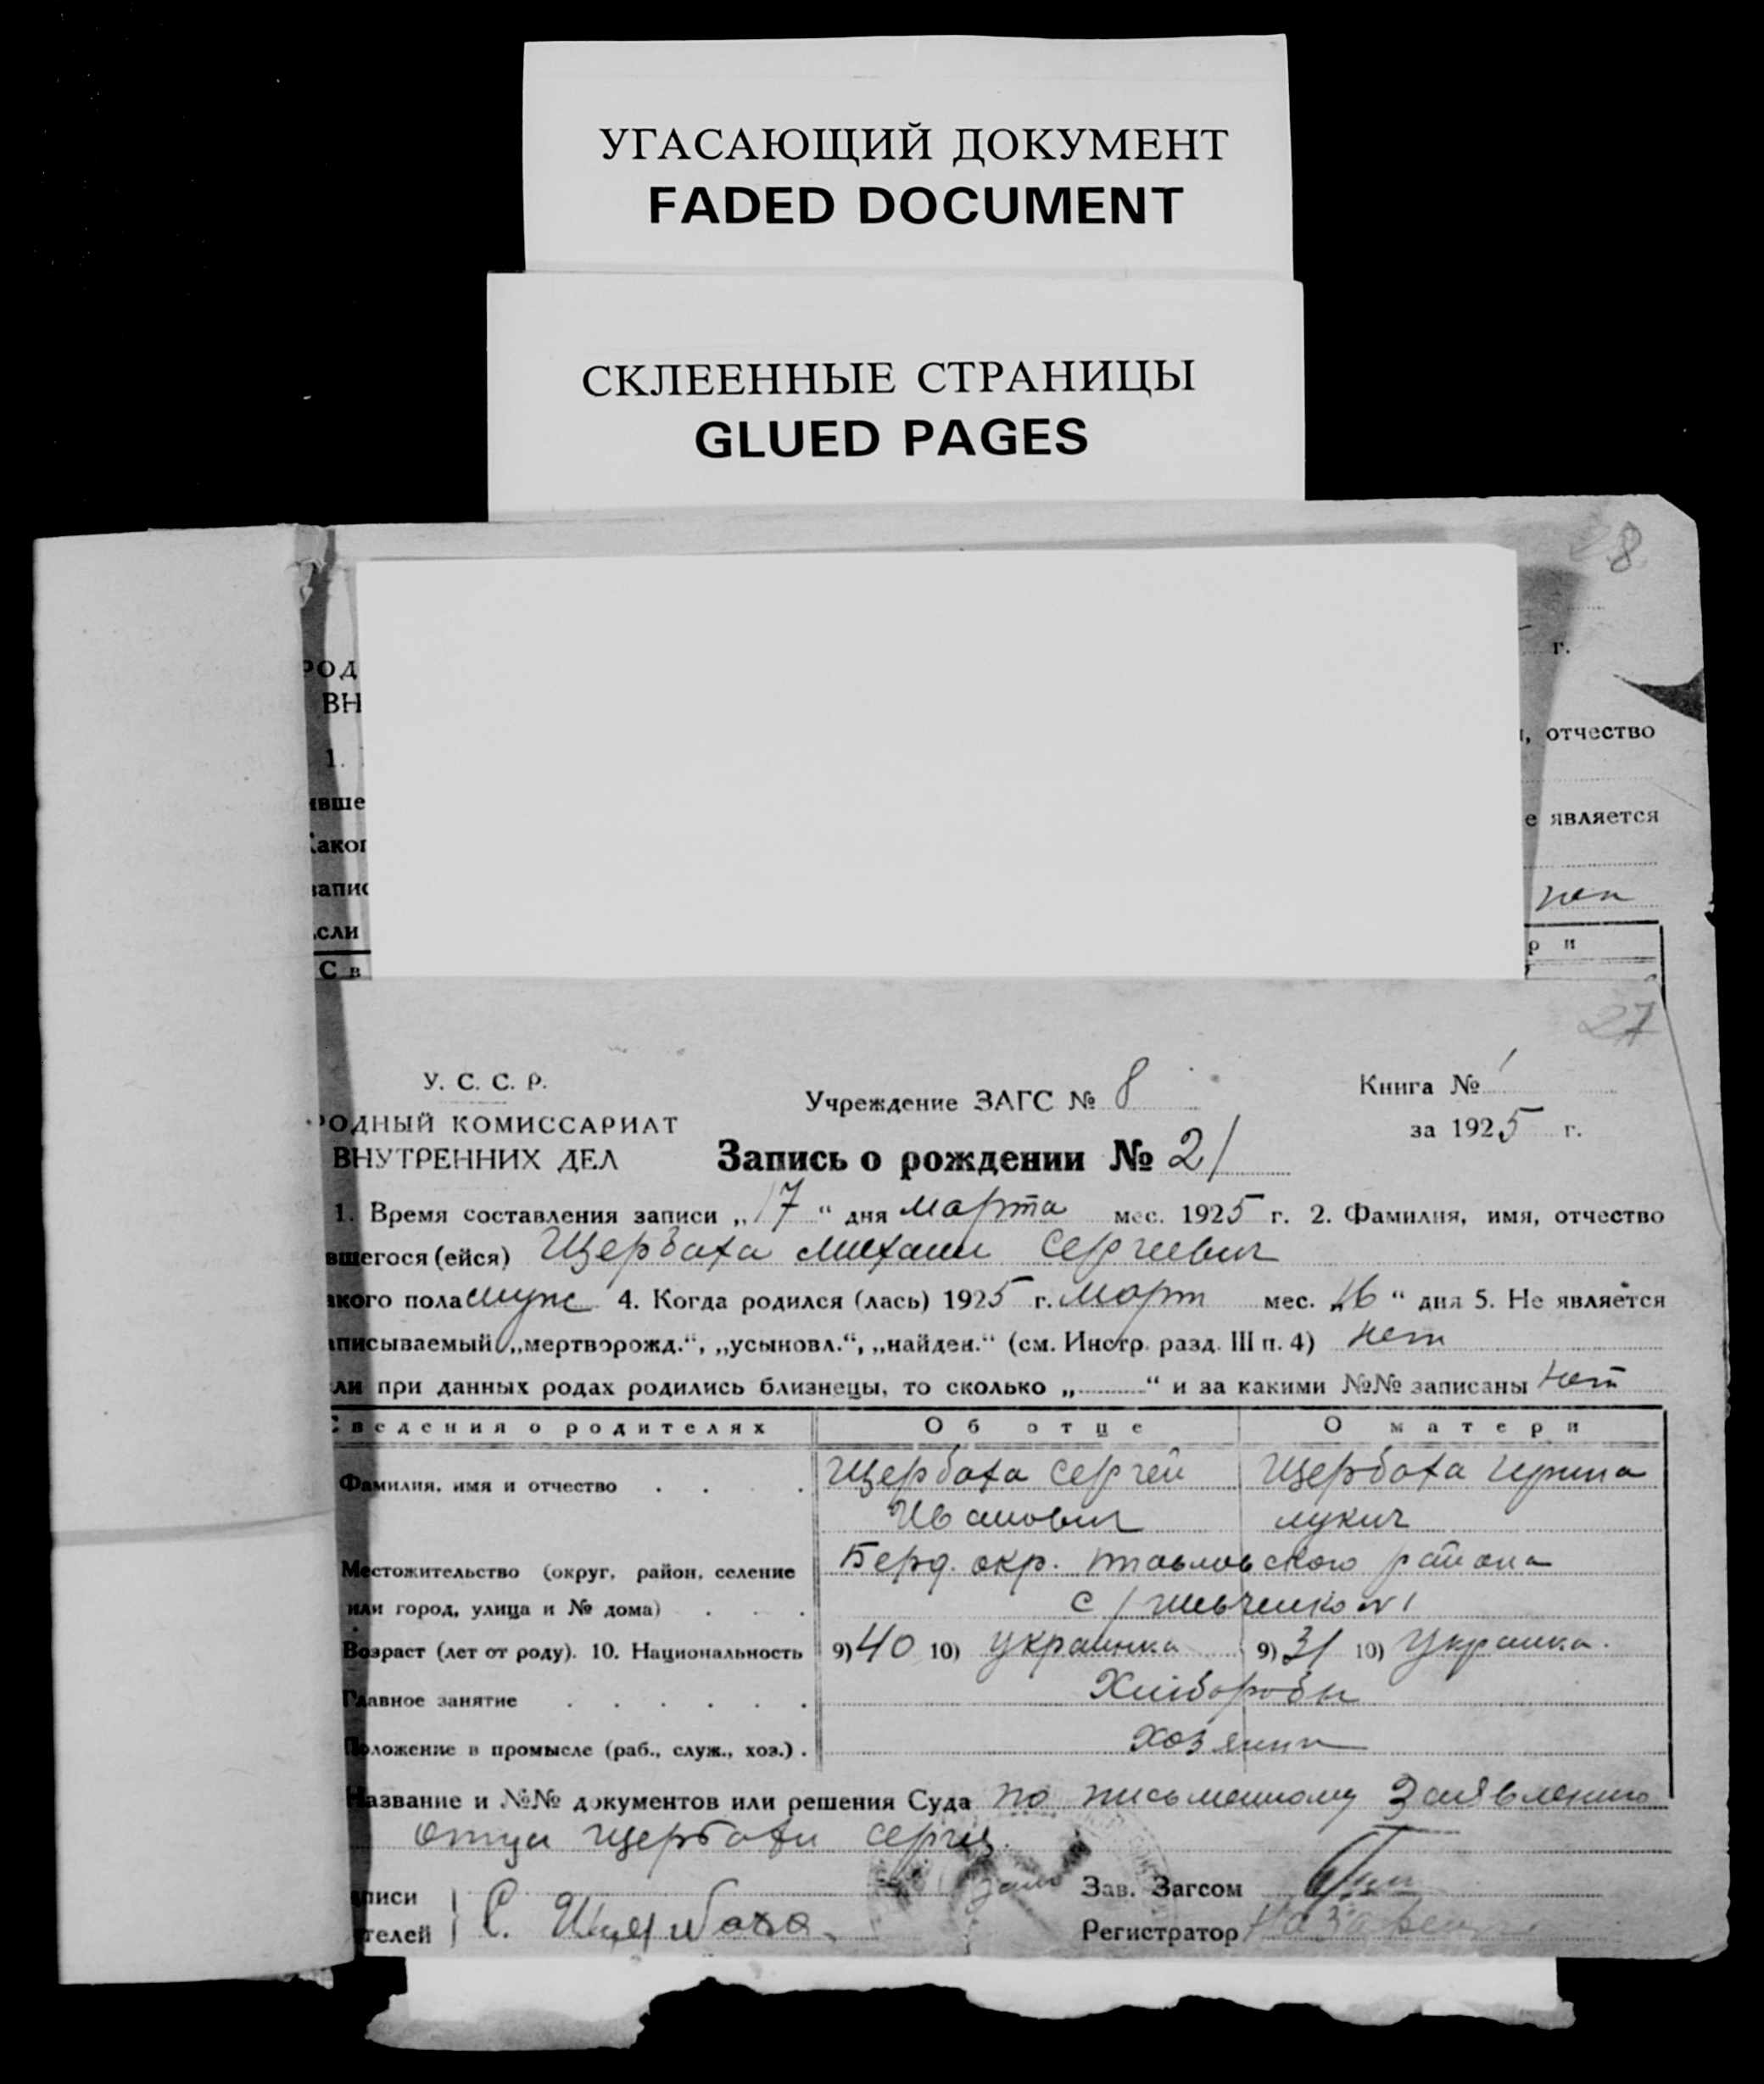 УГАСАЮЩИЙ ДОКУМЕНТ
FADED DOCUMENT
СКЛЕЕННЫЕ СТРАНИЦЫ
GLUED PAGES
28
г.
РОД
ВН
1.
, отчество
ивше
е является
аког
запис
нет
сли
р и
Св
27
У. С. С. Р.
Учреждение ЗАГС № 8
Книга № 1
РОДНЫЙ КОМИССАРИАТ
за 1925 г.
ВНУТРЕННИХ ДЕЛ
Запись о рождении № 21
1. Время составления записи „17“ дня марта мес. 1925 г. 2. Фамилия, имя, отчество
вшегося (ейся) Щербаха Михаил Сергиевич
акого пола муж 4. Когда родился (лась) 1925 г. март мес. „16“ дня 5. Не является
аписываемый „мертворожд.“, „усыновл.“, „найден.“ (см. Инстр. разд. III п. 4) нет
ли при данных родах родились близнецы, то сколько „ “ и за какими №№ записаны нет
Сведения о родителях Об отце О матери
Фамилия, имя и отчество Щербаха Сергей Щербаха Ирина
Иванович лукич
Местожительство (округ, район, селение Берд. окр. района
или город, улица и № дома) с/ шевченко №1
Возраст (лет от роду). 10. Национальность 9) 40 10) украинка 9) 31 10) Украинка.
Главное занятие Хлібороби
Положение в промысле (раб., служ., хоз.) хозяин
Название и №№ документов или решения Суда по письменному Заявлению
отца Щербахи Сергия.
аписи
Зав. Загсом
телей С.
Регистратор